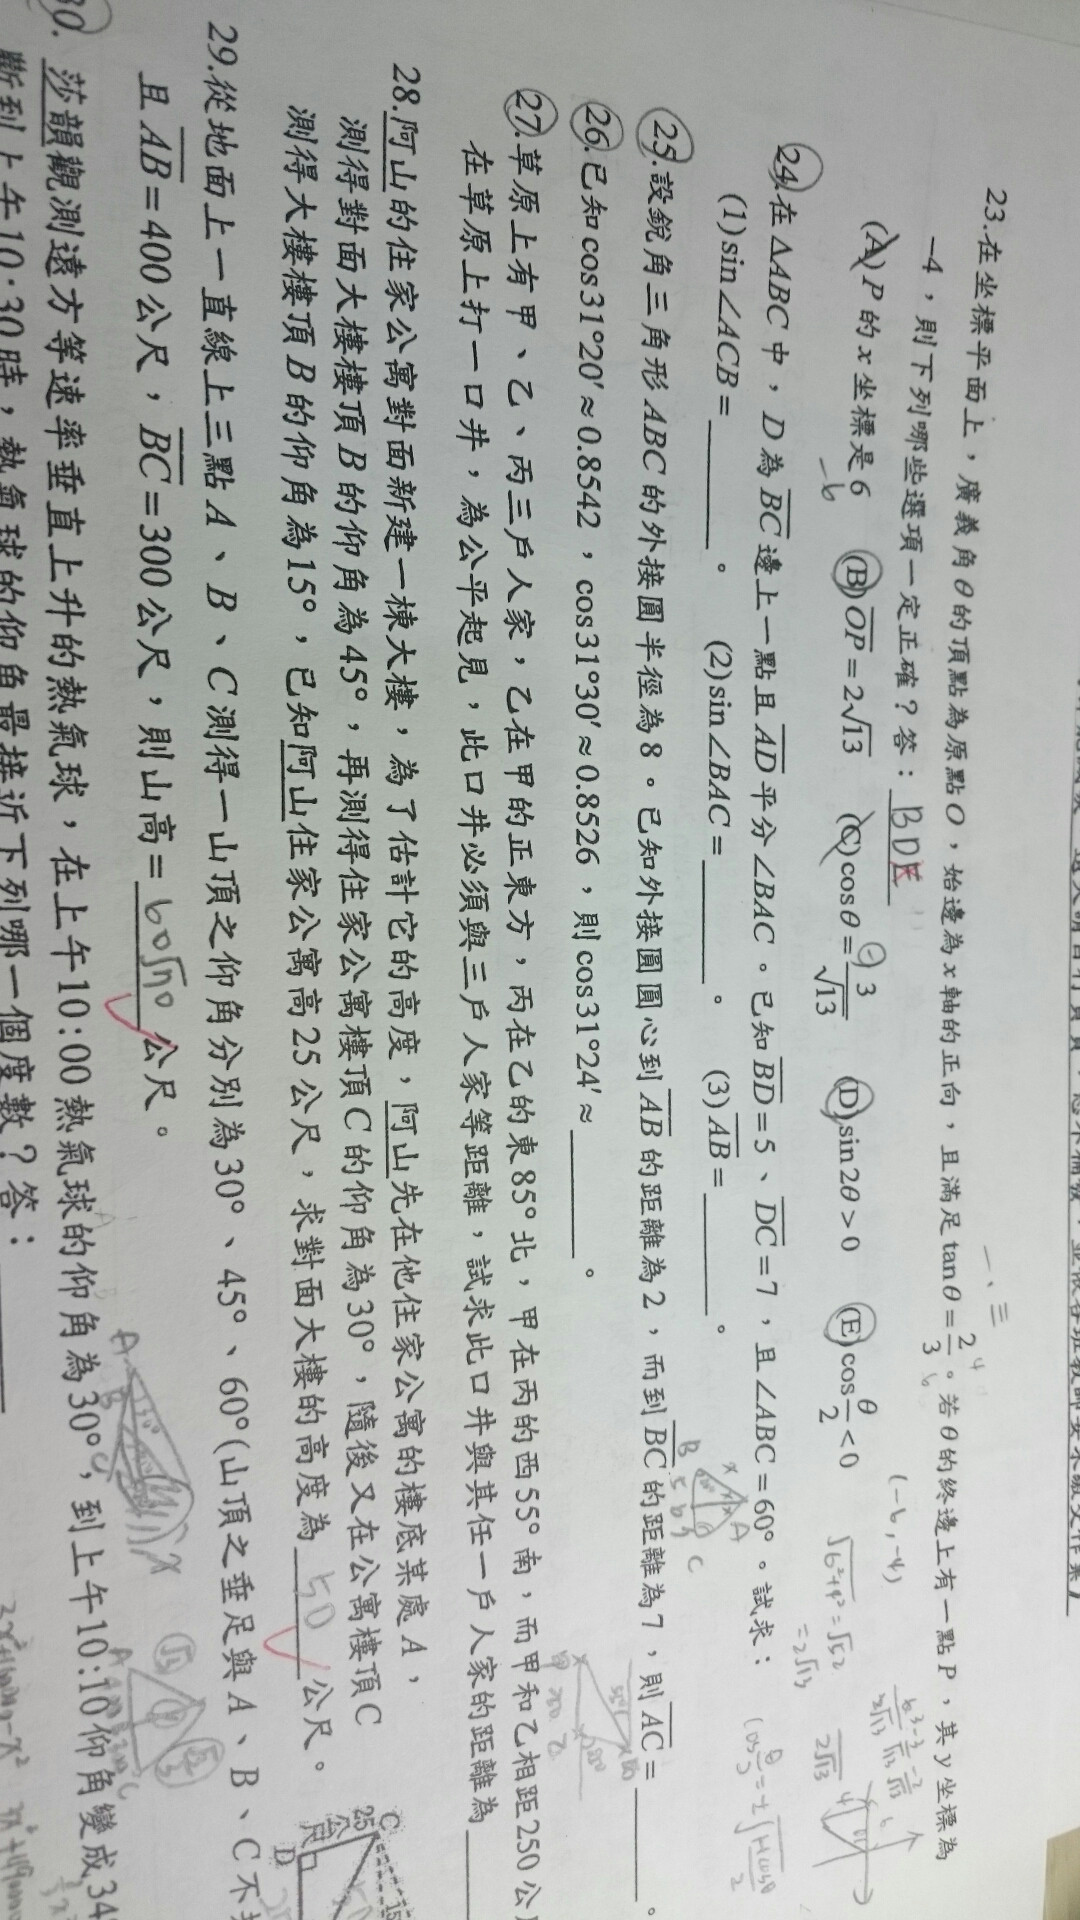 23.在坐標平面上，廣義角θ的頂點為原點O，始邊為x軸的正向，且滿足tanθ=2/3。若θ的終邊上有一點P，其y坐標為
-4，則下列哪些選項一定正確？答：BDE
(A)P的x坐標是6 (B)OP=2√13 (C)cosθ=3/√13 (D)sin2θ>0 (E)cosθ/2<0
24.在ΔABC中，D為BC邊上一點且AD平分∠BAC。已知BD=5、DC=7，且∠ABC=60°。試求：
(1)sin∠ACB=______。 (2)sin∠BAC=______。 (3)AB=______。
25.設銳角三角形ABC的外接圓半徑為8。已知外接圓圓心到AB的距離為2，而到BC的距離為7，則AC=______。
26.已知cos31°20′≈0.8542，cos31°30′≈0.8526，則cos31°24′≈______。
27.草原上有甲、乙、丙三戶人家，乙在甲的正東方，丙在乙的東85°北，甲在丙的西55°南，而甲和乙相距250公
在草原上打一口井，為公平起見，此口井必須與三戶人家等距離，試求此口井與其任一戶人家的距離為
28.阿山的住家公寓對面新建一棟大樓，為了估計它的高度，阿山先在他住家公寓的樓底某處A，
測得對面大樓樓頂B的仰角為45°，再測得住家公寓樓頂C的仰角為30°，隨後又在公寓樓頂C
測得大樓樓頂B的仰角為15°，已知阿山住家公寓高25公尺，求對面大樓的高度為 50 公尺。
29.從地面上一直線上三點A、B、C測得一山頂之仰角分別為30°、45°、60°(山頂之垂足與A、B、C不
且AB=400公尺，BC=300公尺，則山高=60√70公尺。
30.莎韻觀測遠方等速率垂直上升的熱氣球，在上午10:00熱氣球的仰角為30°，到上午10:10仰角變成34
斷到上午10:30時，熱氣球的仰角最接近下列哪一個度數？答：